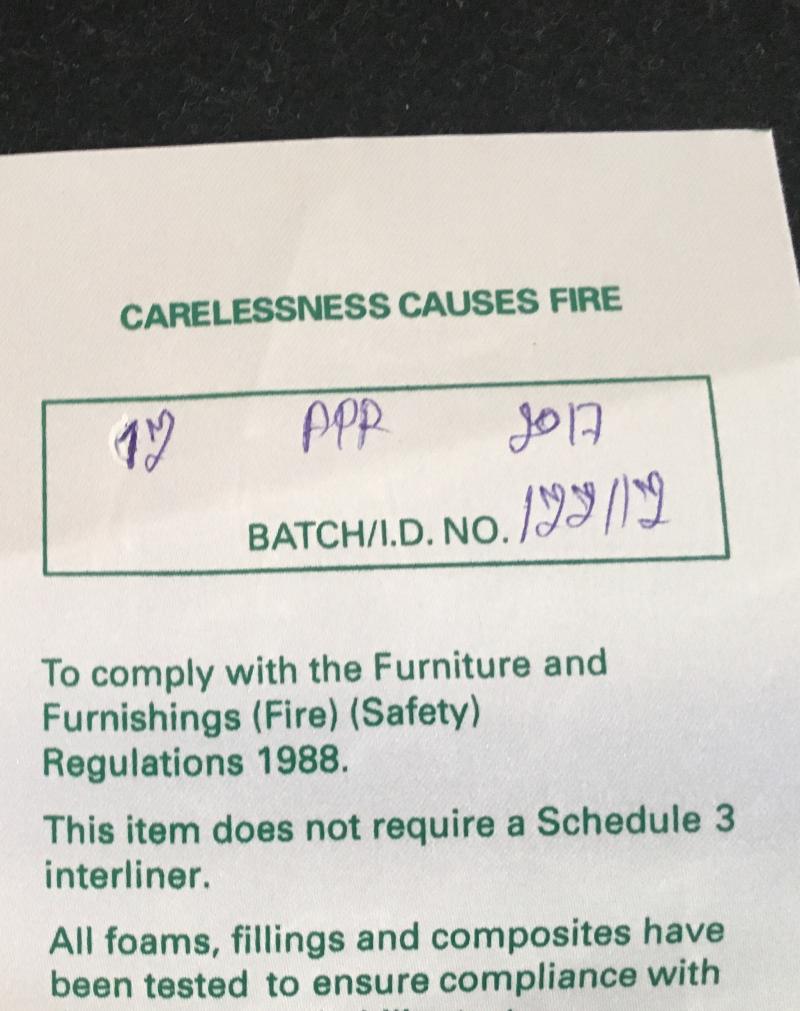 CARELESSNESS CAUSES FIRE
12 APR 2017
BATCH/I.D. NO. 122/12
To comply with the Furniture and
Furnishings (Fire) (Safety)
Regulations 1988.
This item does not require a Schedule 3
interliner.
All foams, fillings and composites have
been tested to ensure compliance with